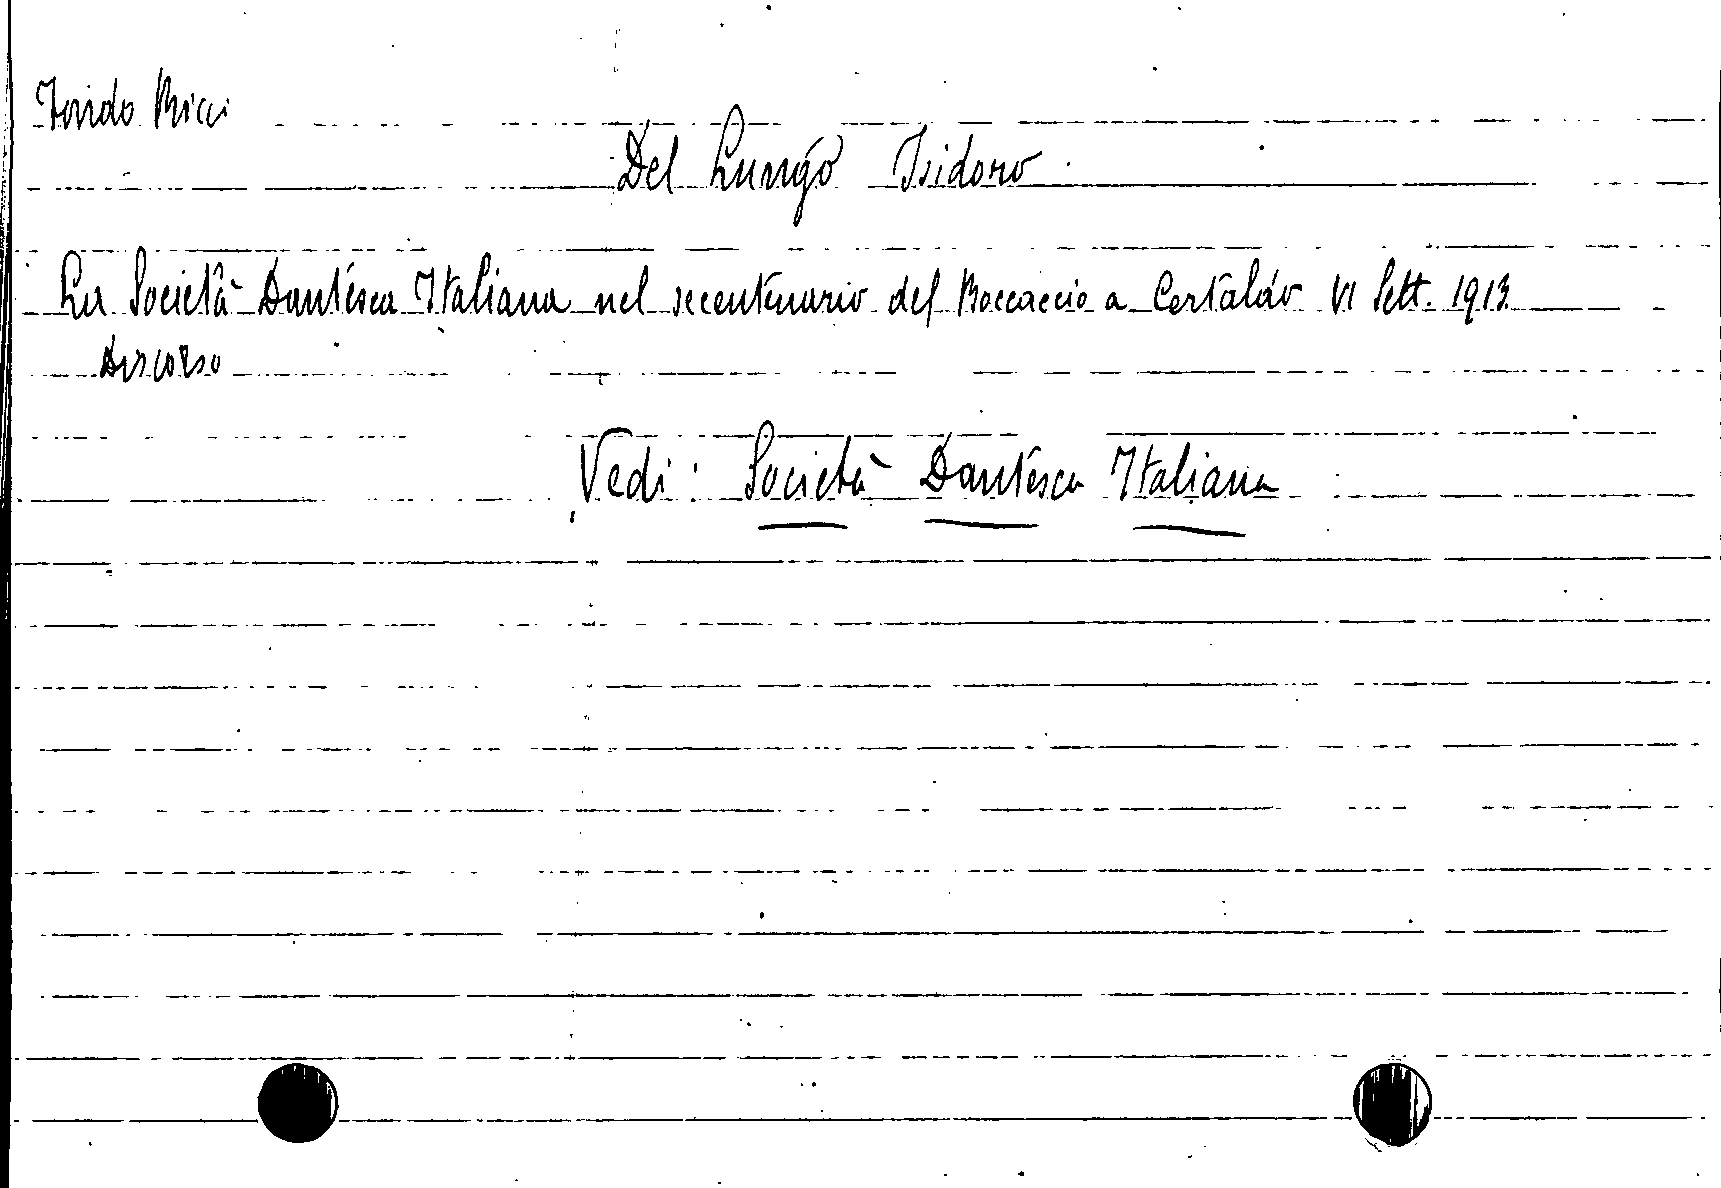 Fondo Ricci
Del Lungo Isidoro
La Società Dantesca Italiana nel secentenario del Boccaccio a Certaldo VI Sett. 1913
Discorso
Vedi: Società Dantesca Italiana